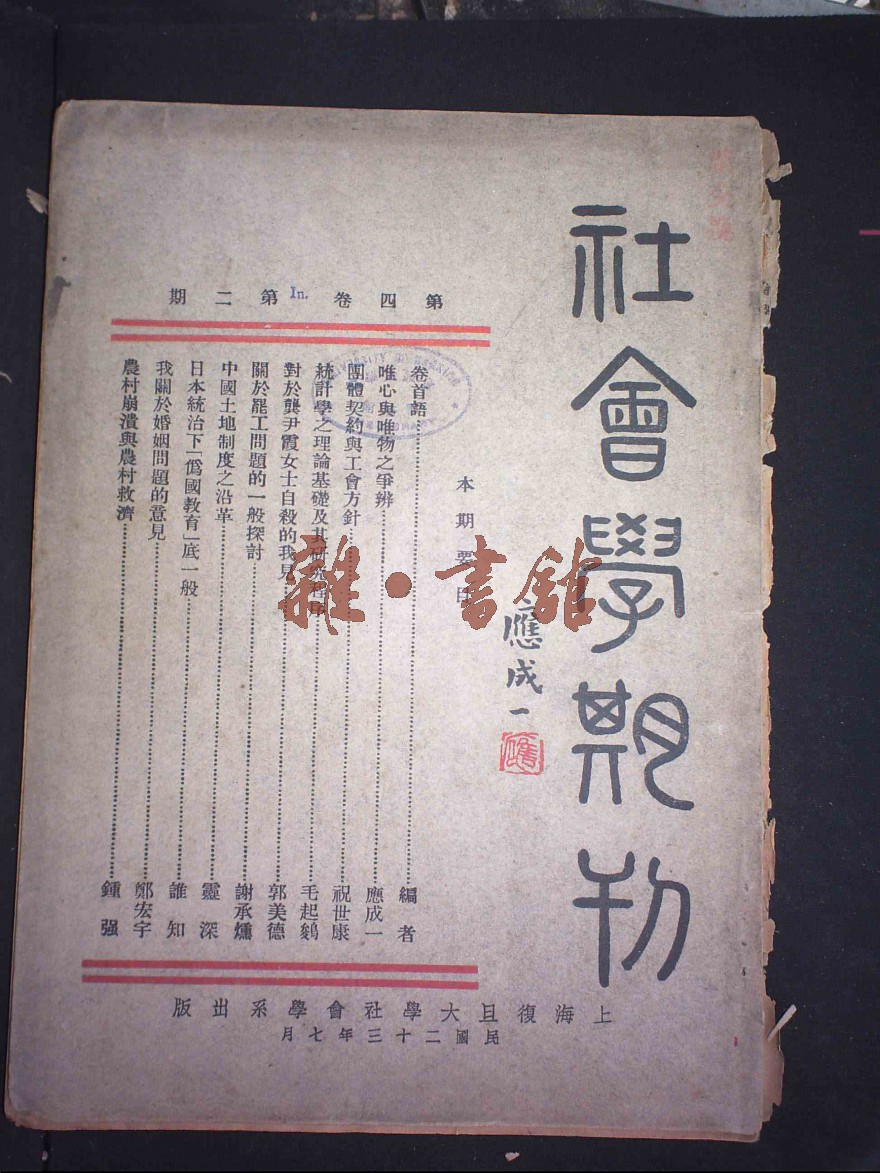 社會學期刊
應成一
第四卷 第二期
In.
本期要目
卷首語 編者
唯心與唯物之爭辨 應成一
團體契約與工會方針 祝世康
統計學之理論基礎及其研究程序 毛起鵕
對於龔尹霞女士自殺的我見 郭美德
關於罷工問題的一般探討 謝承燻
中國土地制度之沿革 靈深
日本統治下「僞國教育」底一般 誰知
我關於婚姻問題的意見 鄭宏宇
農村崩潰與農村救濟 鍾强
上海復旦大學社會學系出版
民國二十三年七月
雜·書館